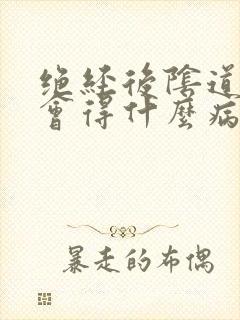 绝經後陰道
會得什麼病
暴走的布偶